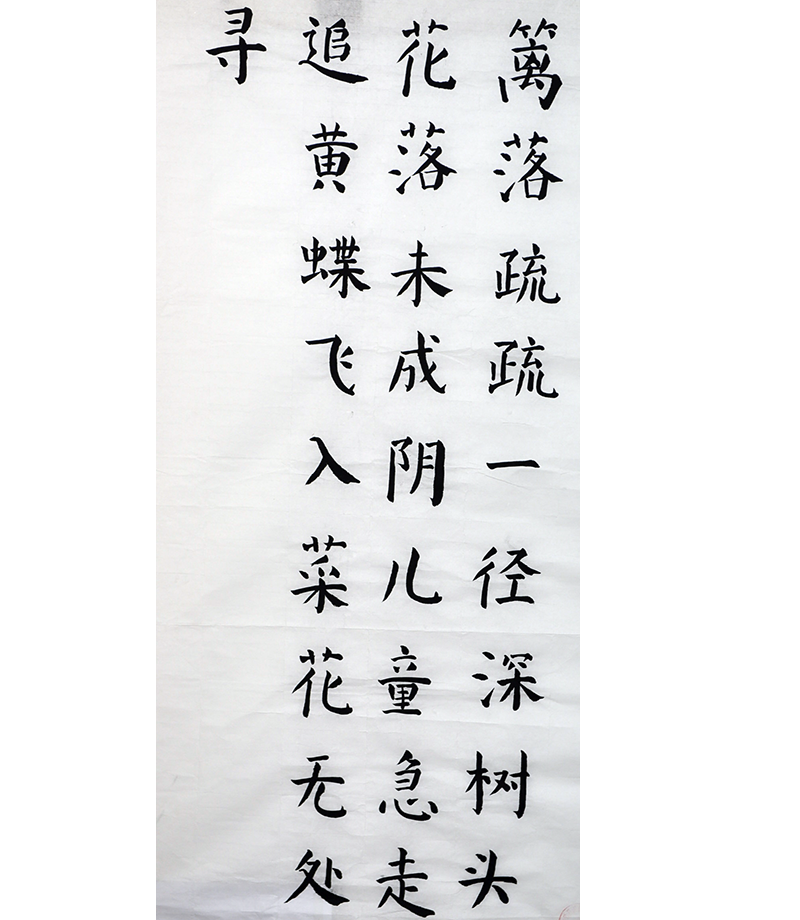 篱落疏疏一径深树头
花落未成阴儿童急走
追黄蝶飞入菜花无处
寻